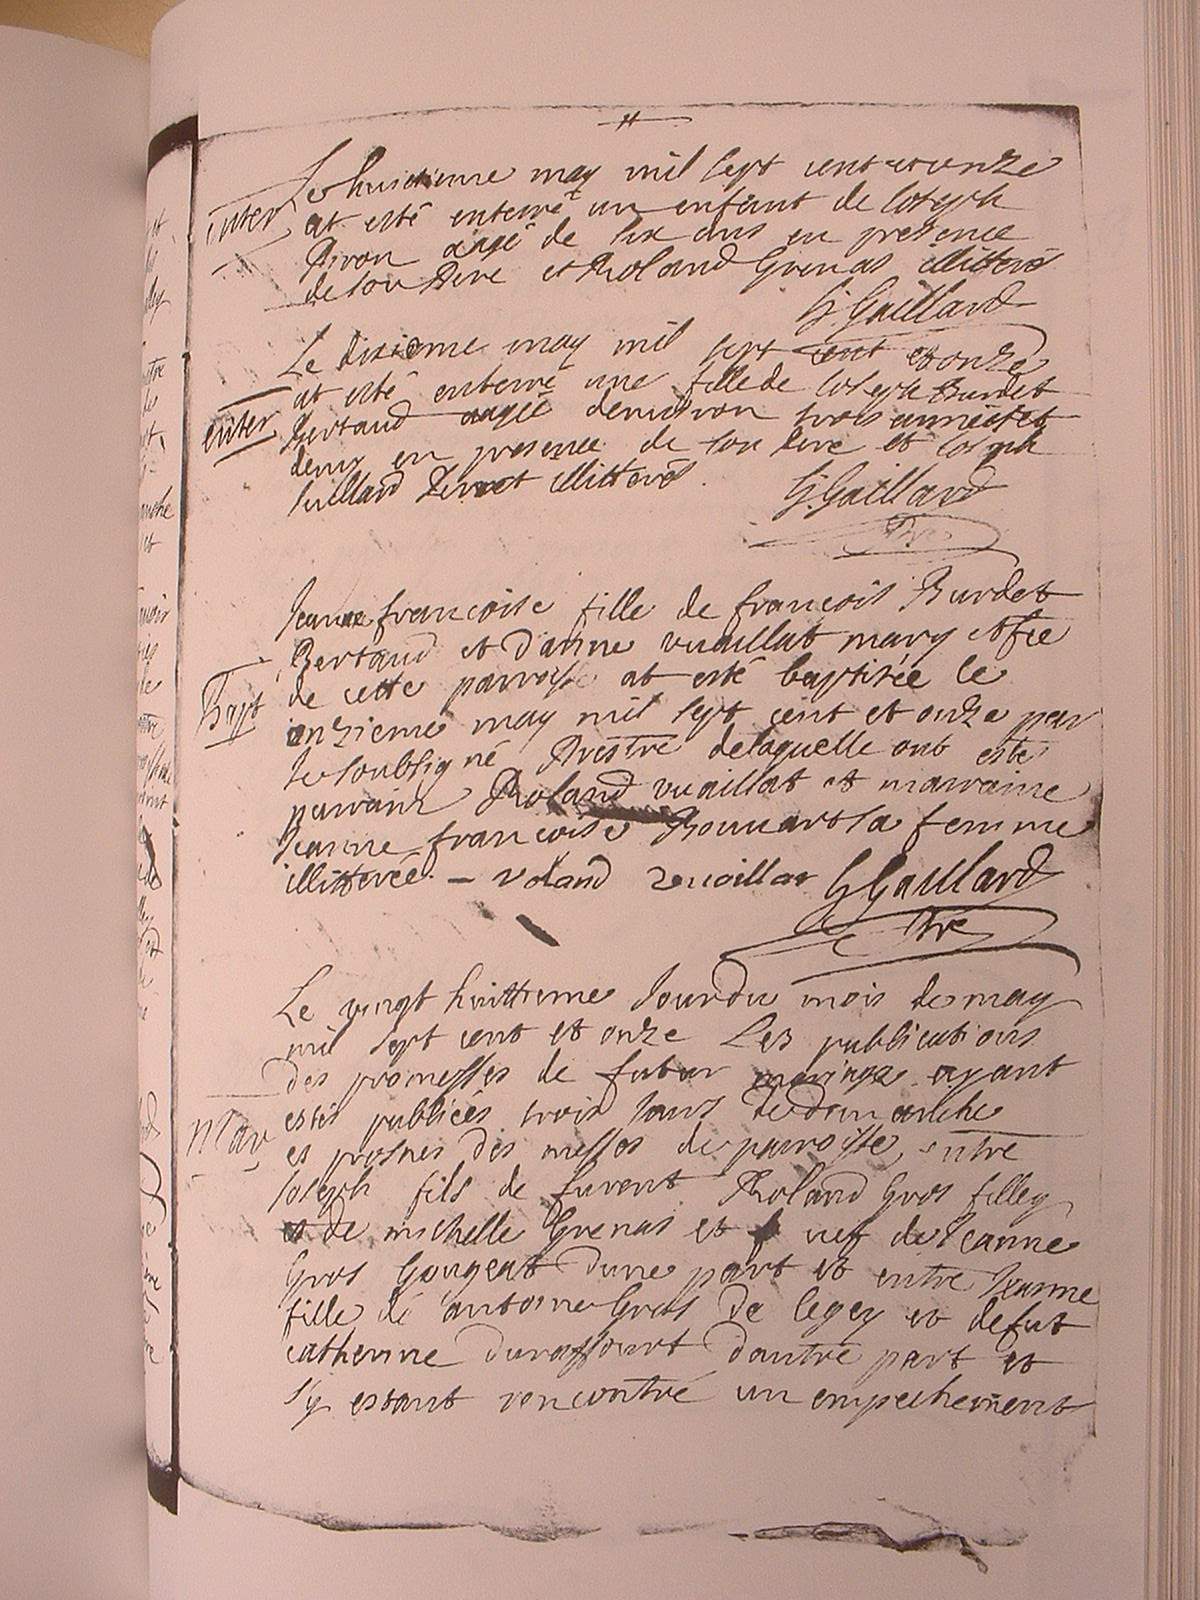 Le huictieme may mil sept cent et onze
inter
at esté enterré un enfant de Joseph
Piron aagé de six ans en presence
de son Pere et Roland Grenas illitteré
G Gaillard
Le dixieme may mil sept cent et onze
at esté enterré une fille de Joseph Burdet
enter
Bertaud aagée denviron trois années et
demy en presence de son Pere et Joseph
Vuillard Perret illitterés.
G. Gaillard
Ptre
Jeanne francoise fille de francois Burdet
Bertaud et danne vuaillat mary et fe
de cette parroisse at esté baptisée le
Bapt
onzieme may mil sept cent et onze par
Je soubsigné Prestre de laquelle ont esté
parrain Roland vuaillat et marraine
Jeanne francoise sa femme
illitterée. — roland G Gaillard
Ptre
Le vingt huittieme Jour du mois de may
mil sept cent et onze Les publications
des promesses de futur mariage ayant
estés publiées trois Jours de dimanche
Mar
es prosnes des messes de paroisse, entre
Joseph fils de Roland Gros filley
et de michelle Grenas et vef de Jeanne
Gros Gougeat dune part et entre Jeanne
fille de antoine Gros de legey et defut
catherine duraffourt dautre part et
s'y estant rencontré un empechement